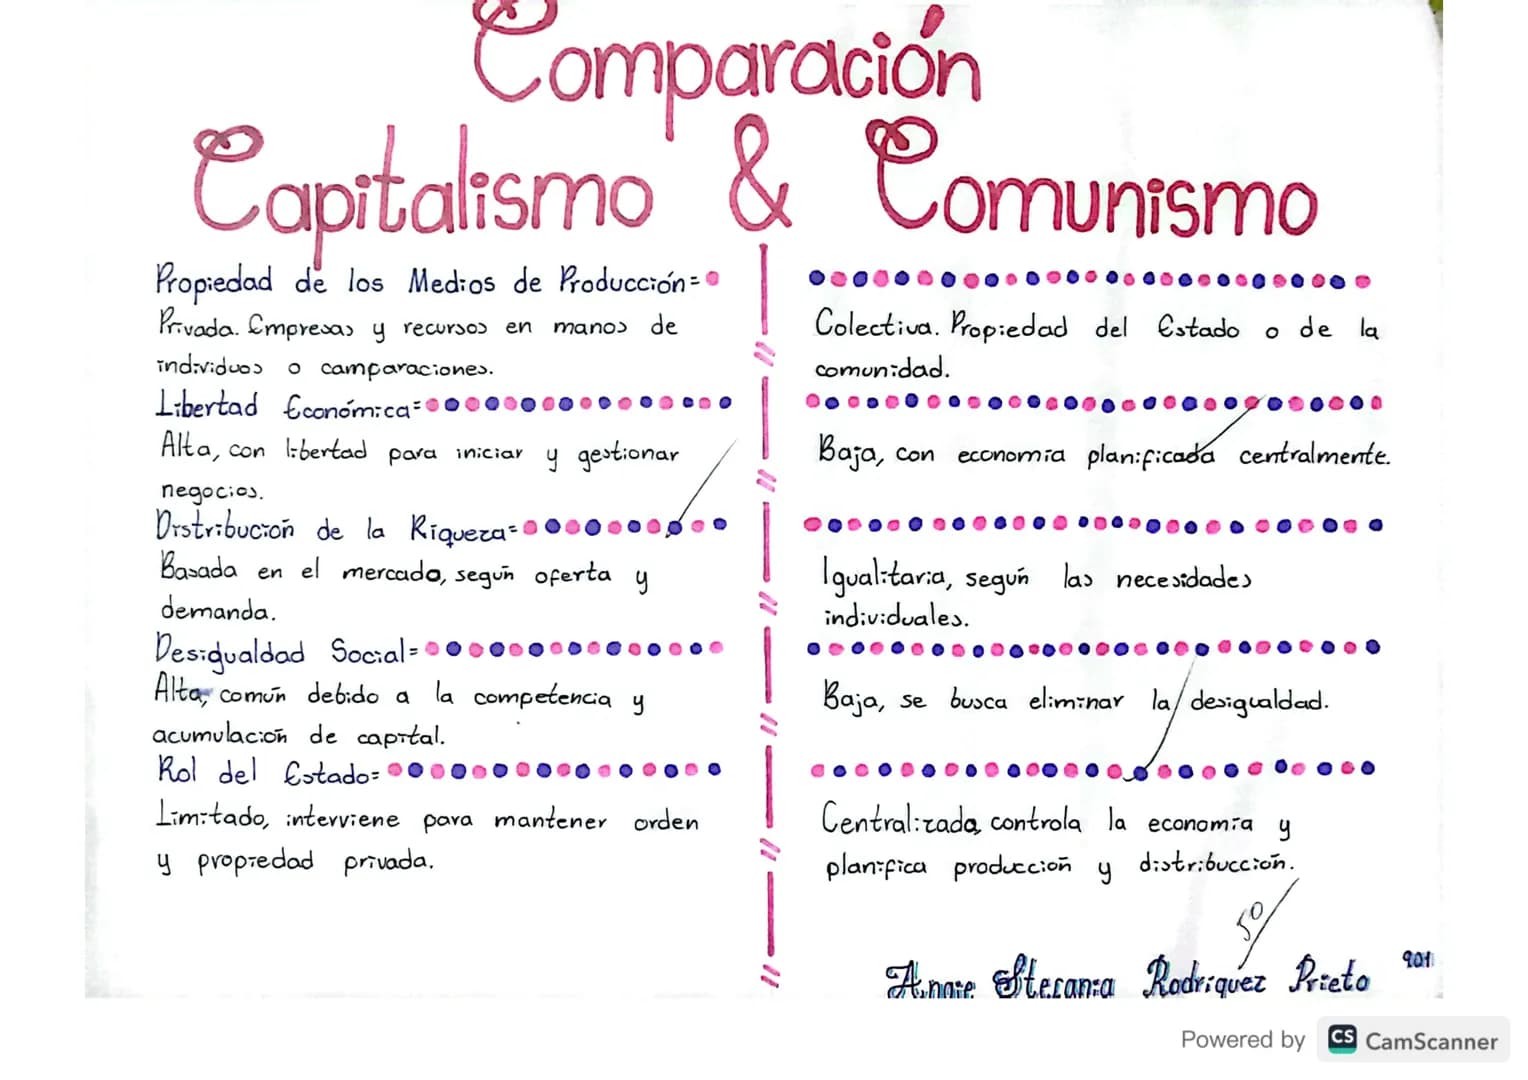 Comparación
Capitalismo & Comunismo
Propiedad de los Medios de Producción=
Privada. Empresas y recursos en manos de
individuos o camparaciones.
Colectiva. Propiedad del Estado o de la
comunidad.
Libertad Económica=
Alta, con libertad para iniciar y gestionar
negocios.
Baja, con economía planificada centralmente.
Distribución de la Riqueza=
Basada en el mercado, según oferta y
demanda.
Igualitaria, según las necesidades
individuales.
Desigualdad Social=
Alta, común debido a la competencia y
acumulación de capital.
Baja, se busca eliminar la desigualdad.
Rol del Estado=
Limitado, interviene para mantener orden
y propiedad privada.
Centralizada, controla la economía y
planifica producción y distribucción.
50
Angie Stefania Rodriguez Prieto 901
Powered by CS CamScanner